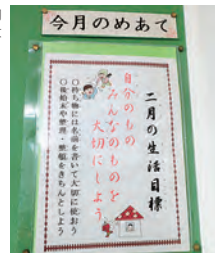 今月のめあて
二月の生活目標
自分のもの
みんなのものを
大切にしよう
○持ち物には名前を書いて大切に使おう
○後始末や整理・整頓をきちんとしよう